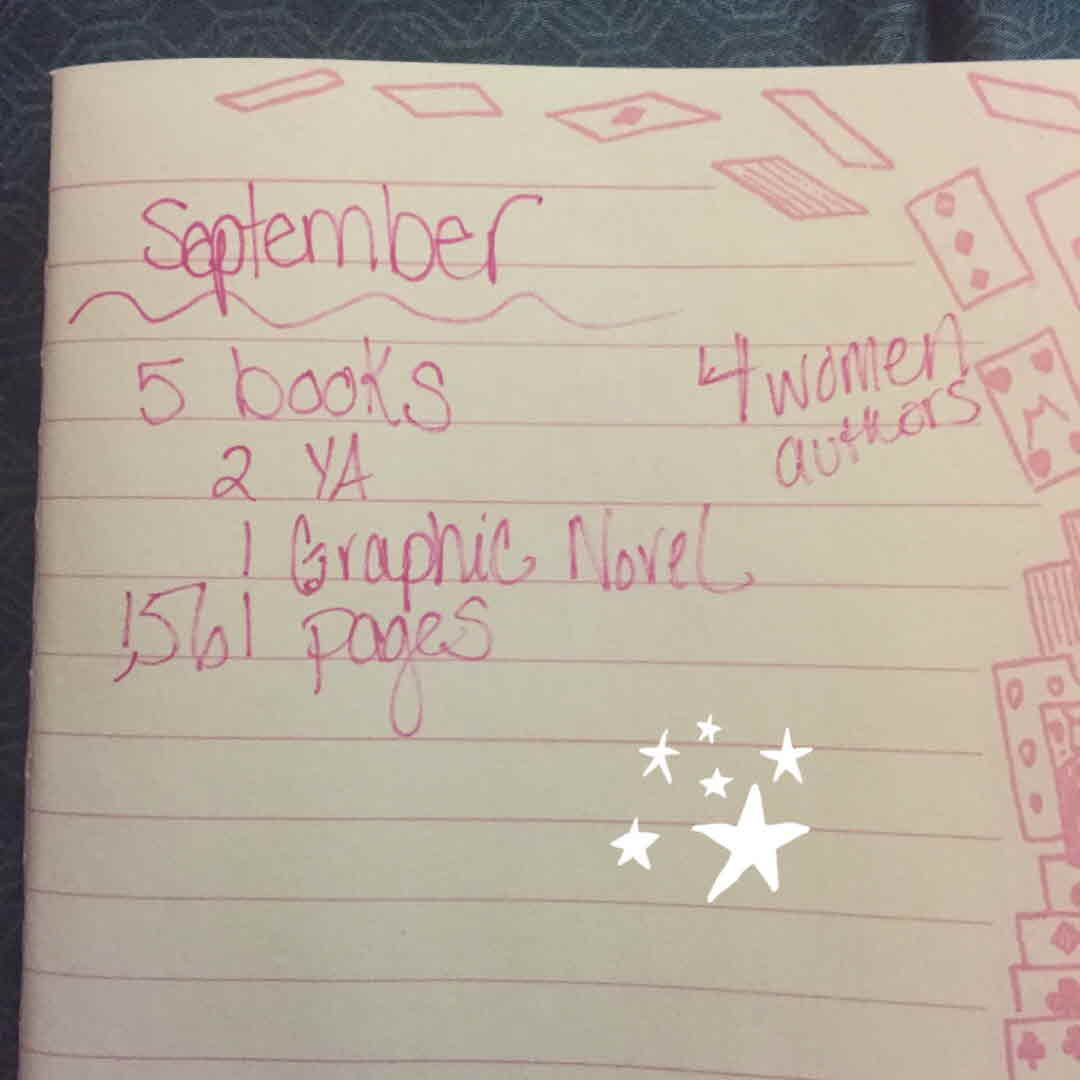 September
5 books
4 women
authors
2 YA
1 Graphic Novel
1,561 pages